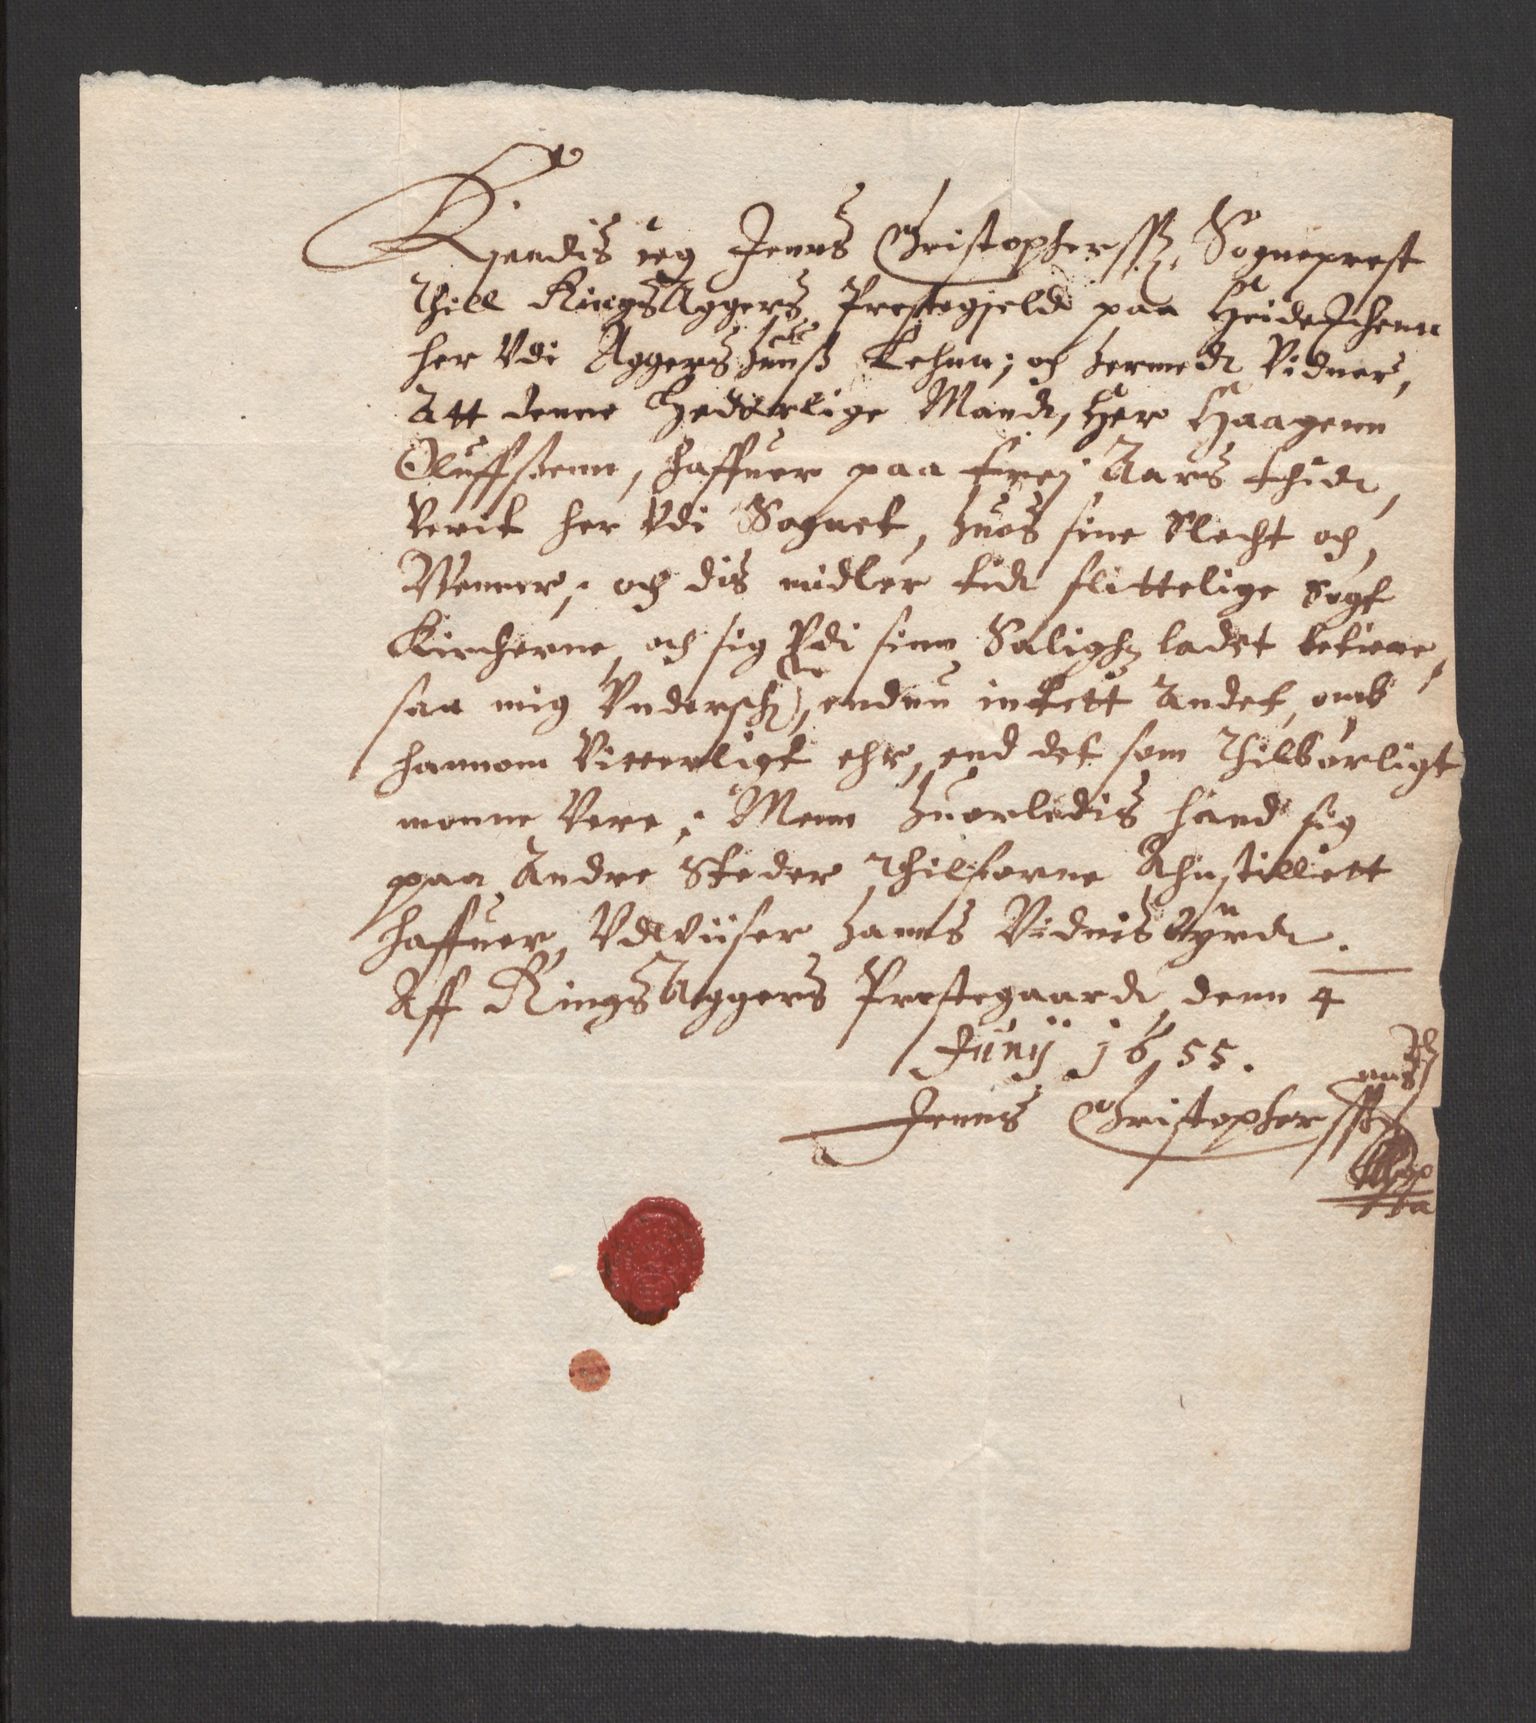 Kjendis ieg Jenns Christophersß: Sogneprest
Thill RingsAggers Prestegield paa Heidemchenn
her Vdi Aggershuuß Lehnn; och hermedt Vidner,
Att denne Hederlige Mandt, Her Haagenn
Oluffssenn, haffuer paa trej Aars thidt,
Verit her Vdi Sognet, huos sine Slecht och
Wenner; och dis midler tidt flittelige søgt
Kircherne, och sig Vdi sinn Saligh: ladet betiene,
saa mig Vndersch:, endnu inttett Andet, omb
hannom Vitterligt ehr, end det som Thilbørligt
monne Vere; Menn huorledis hand sig
paa Andre Steder Thilforne Ahnstillett
haffuer, Vdviiser hanns Vidnisbyrdt.
Aff RingsAggers Prestegaardt denn 4
Junij 1655.
Jenns Christophersß: